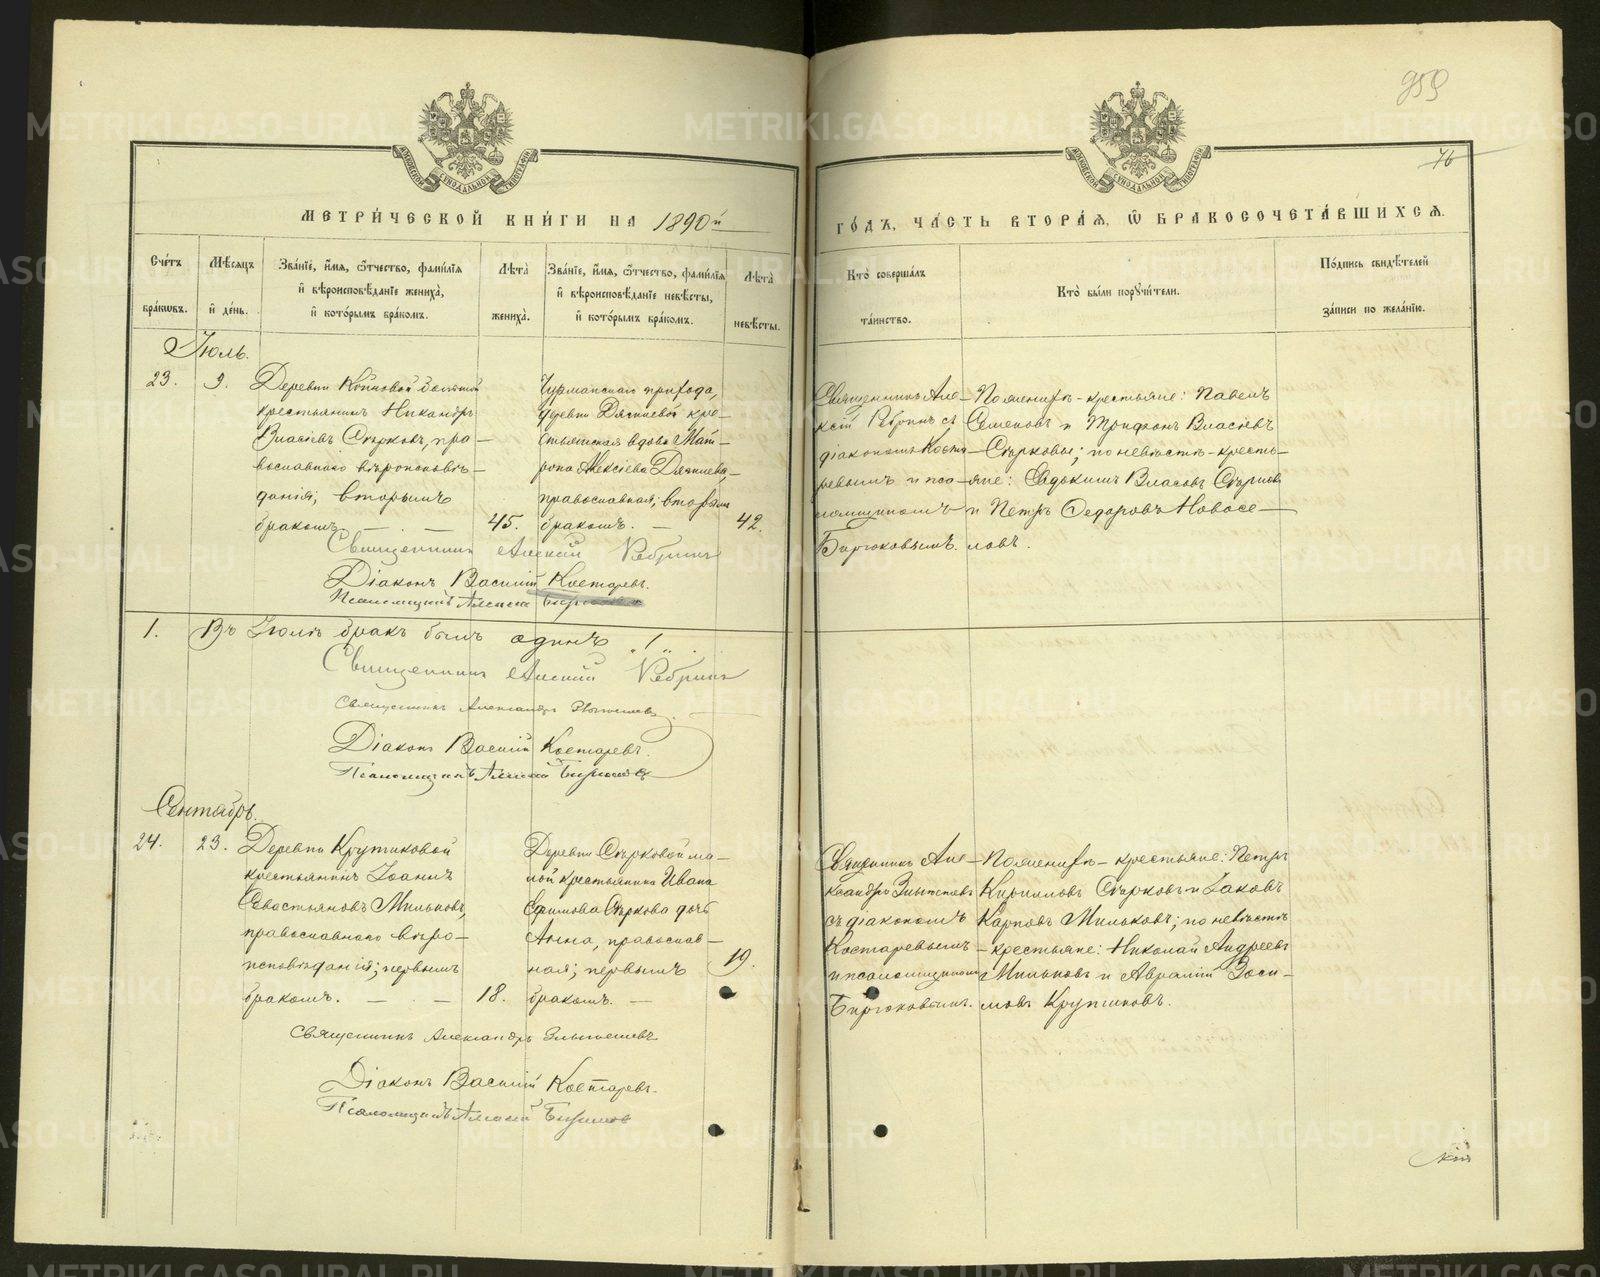 959
76
МОСКОВСКОЙ СѴНОДАЛЬНОЙ ТИПОГРАФІИ
МОСКОВСКОЙ СѴНОДАЛЬНОЙ ТИПОГРАФІИ
МЕТРИ́ЧЕСКОЙ КНИ́ГИ НА 1890й
ГО́ДЪ, ЧА́СТЬ ВТОРА́Я, Ѿ БРАКОСОЧЕТА́ВШИХСЯ.
Сче́тъ бра́кѡвъ.
Мѣ́сяцъ и҆ де́нь.
Зва́нїе, и҆́мя, ѻ҆́тчество, фами́лїя и҆ вѣроисповѣ́данїе жениха̀, и҆ кото́рымъ бра́комъ.
Лѣта̀ жениха̀.
Зва́нїе, и҆́мя, ѻ҆́тчество, фами́лїя и҆ вѣроисповѣ́данїе невѣ́сты, и҆ кото́рымъ бра́комъ.
Лѣта̀ невѣ́сты.
Кто̀ соверша́лъ та́инство.
Кто̀ бы́ли поручи́тели.
По́дпись свидѣ́телей за́писи по жела́нїю.
Іюль.
23.
9.
Деревни
крестьянинъ Никандръ
Власіевъ Сѣрковъ, пра-
вославнаго вѣроисповѣ-
данія; вторымъ
бракомъ. — . —
45.
прихода,
деревни кре-
стьянская вдова Мат-
рона Алексіева
православная; вторымъ
бракомъ. —
42.
Священникъ Але-
ксій Ребринъ съ
діакономъ Коста-
ревымъ и пса-
ломщикомъ
Бирюковымъ.
По женихѣ - крестьяне: Павелъ
Семеновъ и Трифонъ Власіевъ
Сѣрковы; по невѣстѣ - кресть-
яне: Евдокимъ Власовъ Сѣрков
и Петръ Ѳедоровъ Новосе-
ловъ.
Священникъ Алексій Ребринъ
Діаконъ Василій Костаревъ.
Псаломщикъ Алексій Бирюковъ
1.
Въ Іюлѣ бракъ былъ одинъ „1„.
Священникъ Алексій Ребринъ
Священникъ Александръ
Діаконъ Василій Костаревъ.
Псаломщикъ Алексій Бирюковъ
Сентябрь.
24.
23.
Деревни Крутиковой
крестьянинъ Іоаннъ
Севастьяновъ Мильковъ,
православнаго вѣро-
исповѣданія; первымъ
бракомъ. — . —
18.
Деревни Сѣрковой ма-
лой крестьянина Ивана
Ефимова Сѣркова дочь
Анна, православ-
ная; первымъ
бракомъ. —
19.
Священникъ Але-
ксандръ
съ діакономъ
Костаревымъ
и псаломщикомъ
Бирюковымъ.
По женихѣ - крестьяне: Петръ
Кирилловъ Сѣрковъ и Іаковъ
Карповъ Мильковъ; по невѣстѣ
- крестьяне: Николай Андреевъ
Мильковъ и Авраамій Зоси-
мовъ Крутиковъ.
Священникъ Александръ
Діаконъ Василій Костаревъ.
Псаломщикъ Алексій Бирюковъ
METRIKI.GASO-URAL.RU